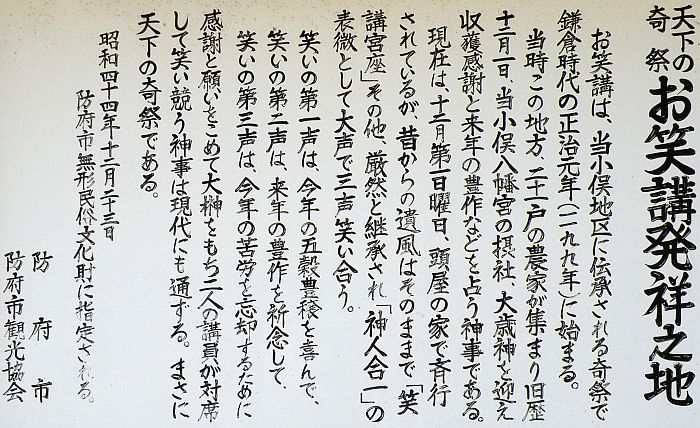 天下の奇祭 お笑講発祥之地
お笑講は、当小俣地区に伝承される奇祭で
鎌倉時代の正治元年(一一九九年)に始まる。
当時この地方、二十一戸の農家が集まり旧歴
十二月一日、当小俣八幡宮の摂社、大歳神を迎え
収獲感謝と来年の豊作などを占う神事である。
現在は、十二月第一日曜日、頭屋の家で斉行
されているが、昔からの遺風はそのままで「笑
講宮座」その他、厳然と継承され「神人合一」の
表徴として大声で三声笑い合う。
笑いの第一声は、今年の五穀豊穣を喜んで、
笑いの第二声は、来年の豊作を祈念して、
笑いの第三声は、今年の苦労を忘却するために
感謝と願いをこめて大榊をもち二人の講員が対席
して笑い競う神事は現代にも通ずる。まさに
天下の奇祭である。
昭和四十四年十二月二十三日
防府市無形民俗文化財に指定される。
防府市
防府市観光協会